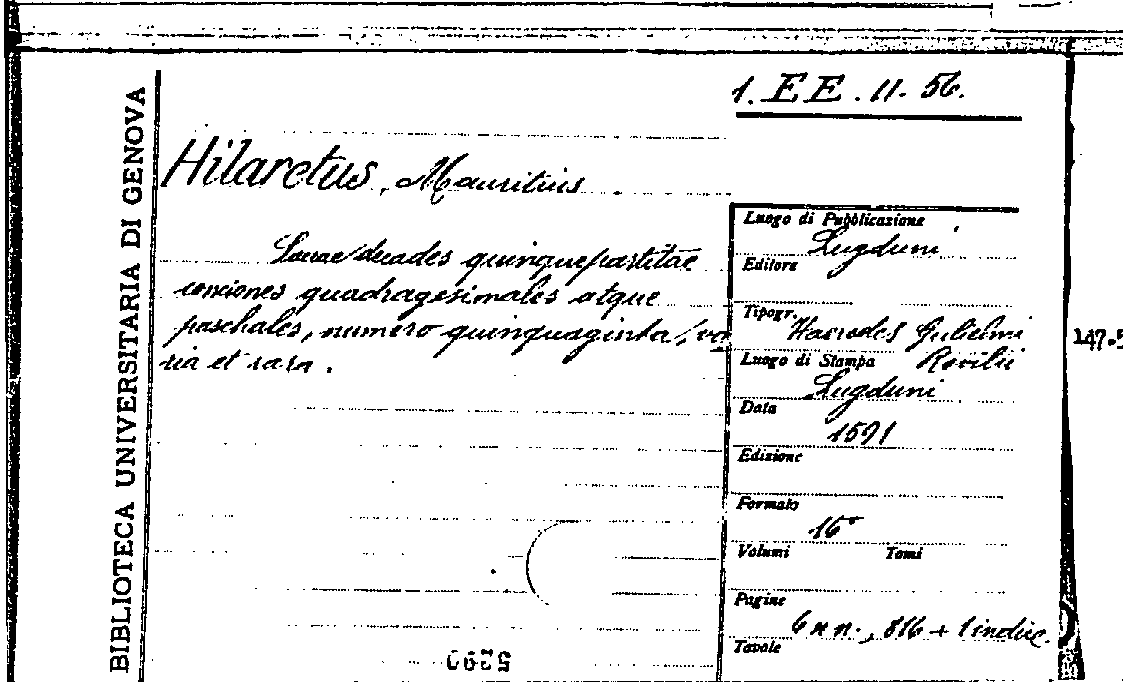 1. EE. 11. 56.
BIBLIOTECA UNIVERSITARIA DI GENOVA
Hilaretus, Mauritius.
Sacrae decades quinquepartitae
conciones quadragesimales atque
paschales, numero quinquaginta, va
ria et rara.
Luogo di Pubblicazione
Lugduni
Editore
Tipogr.
Haerodes Gulielmi
Rovilii
Luogo di Stampa
Lugduni
Data
1591
Edizione
Formato
16°
Volumi Tomi
Pagine
6 n n., 816 + 1 indic.
Tavole
147.5